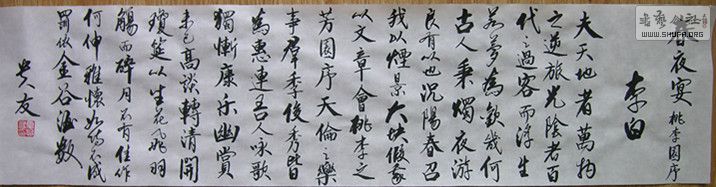 春夜宴桃李園序
李白
夫天地者萬物
之逆旅光陰者百
代之過客而浮生
若夢為歡幾何
古人秉燭夜游
良有以也況陽春召
我以煙景大塊假我
以文章會桃李之
芳園序天倫之樂
事群季俊秀皆
為惠連吾人詠歌
獨慚康樂幽賞
未已高談轉清開
瓊筵以坐花飛羽
觴而醉月不有佳作
何伸雅懷如詩不成
罰依金谷酒數
友
書藝公社
WWW.SHUFA.ORG